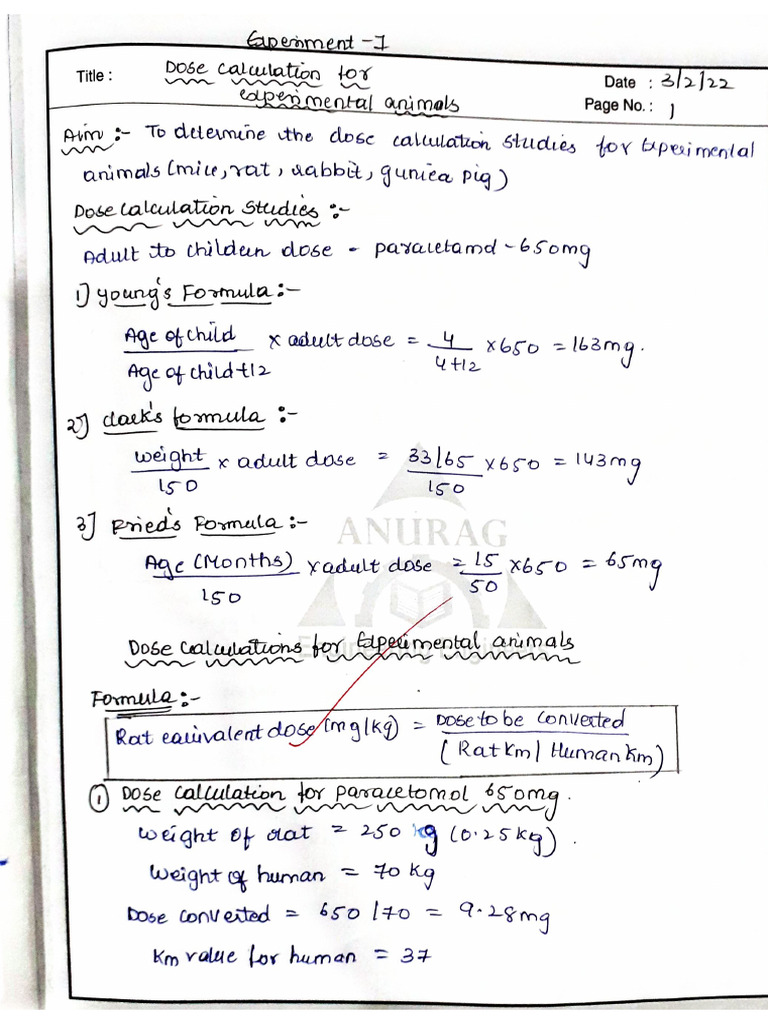 Experiment - 1
Title : Dose calculation for
experimental animals
Date : 3/2/22
Page No. : 1
Aim :- To determine the dose calculation studies for Experimental
animals (mice, rat, rabbit, guniea pig)
Dose Calculation Studies :-
Adult to children dose - paracetamol - 650mg
1) Young's Formula :-
Age of child / Age of child +12 x adult dose = 4 / 4+12 x 650 = 163mg.
2) Clark's formula :-
weight / 150 x adult dose = 33/65 / 150 x 650 = 143mg
3) Fried's Formula :-
Age (Months) / 150 x adult dose = 15 / 50 x 650 = 65mg
ANURAG
Dose calculations for Experimental animals
Formula :-
Rat equivalent dose (mg/kg) = Dose to be converted / (Rat Km / Human Km)
① Dose calculation for paracetomol 650mg.
weight of rat = 250 kg (0.25kg).
weight of human = 70 kg
Dose converted = 650/70 = 9.28mg
Km value for human = 37